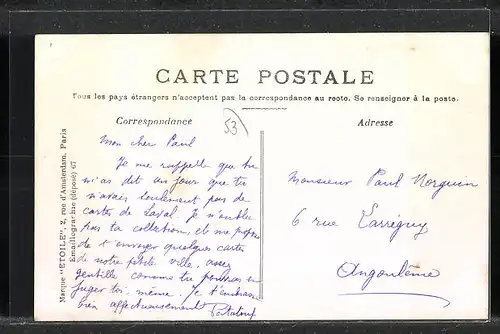 CARTE POSTALE
Tous les pays étrangers n'acceptent pas la correspondance au recto. Se renseigner à la poste.
Correspondance
Adresse
53
Mon cher Paul
Je me rappelle que tu
m'as dit un jour que tu
n'avais seulement pas de
cartes de Laval. Je n'oublie
pas ta collection, et me propose
de t'envoyer quelques cartes
de notre petite ville assez
gentille comme tu pourras en
juger toi-même. Je t'embrasse
bien affectueusement
Monsieur Paul Norguin
6 rue Larréguy
Angoulême
Marque "ETOILE", 2, rue d'Amsterdam, Paris
Emaillogravine (déposé) 67